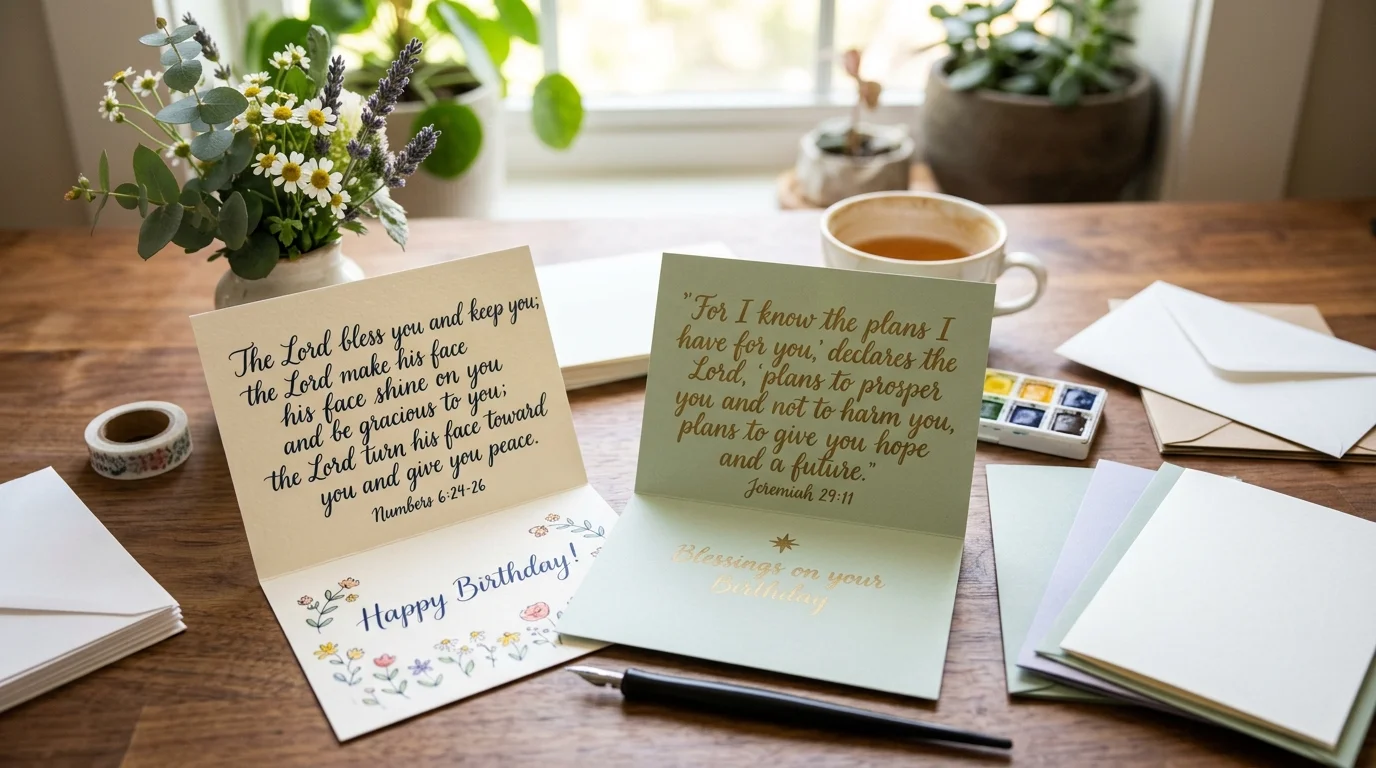 The Lord bless you and keep you;
the Lord make his face
his face shine on you
and be gracious to you;
the Lord turn his face toward
you and give you peace.
Numbers 6:24-26
Happy Birthday!
"For I know the plans I
have for you,' declares the
Lord, 'plans to prosper
you and not to harm you,
plans to give you hope
and a future."
Jeremiah 29:11
Blessings on your
Birthday